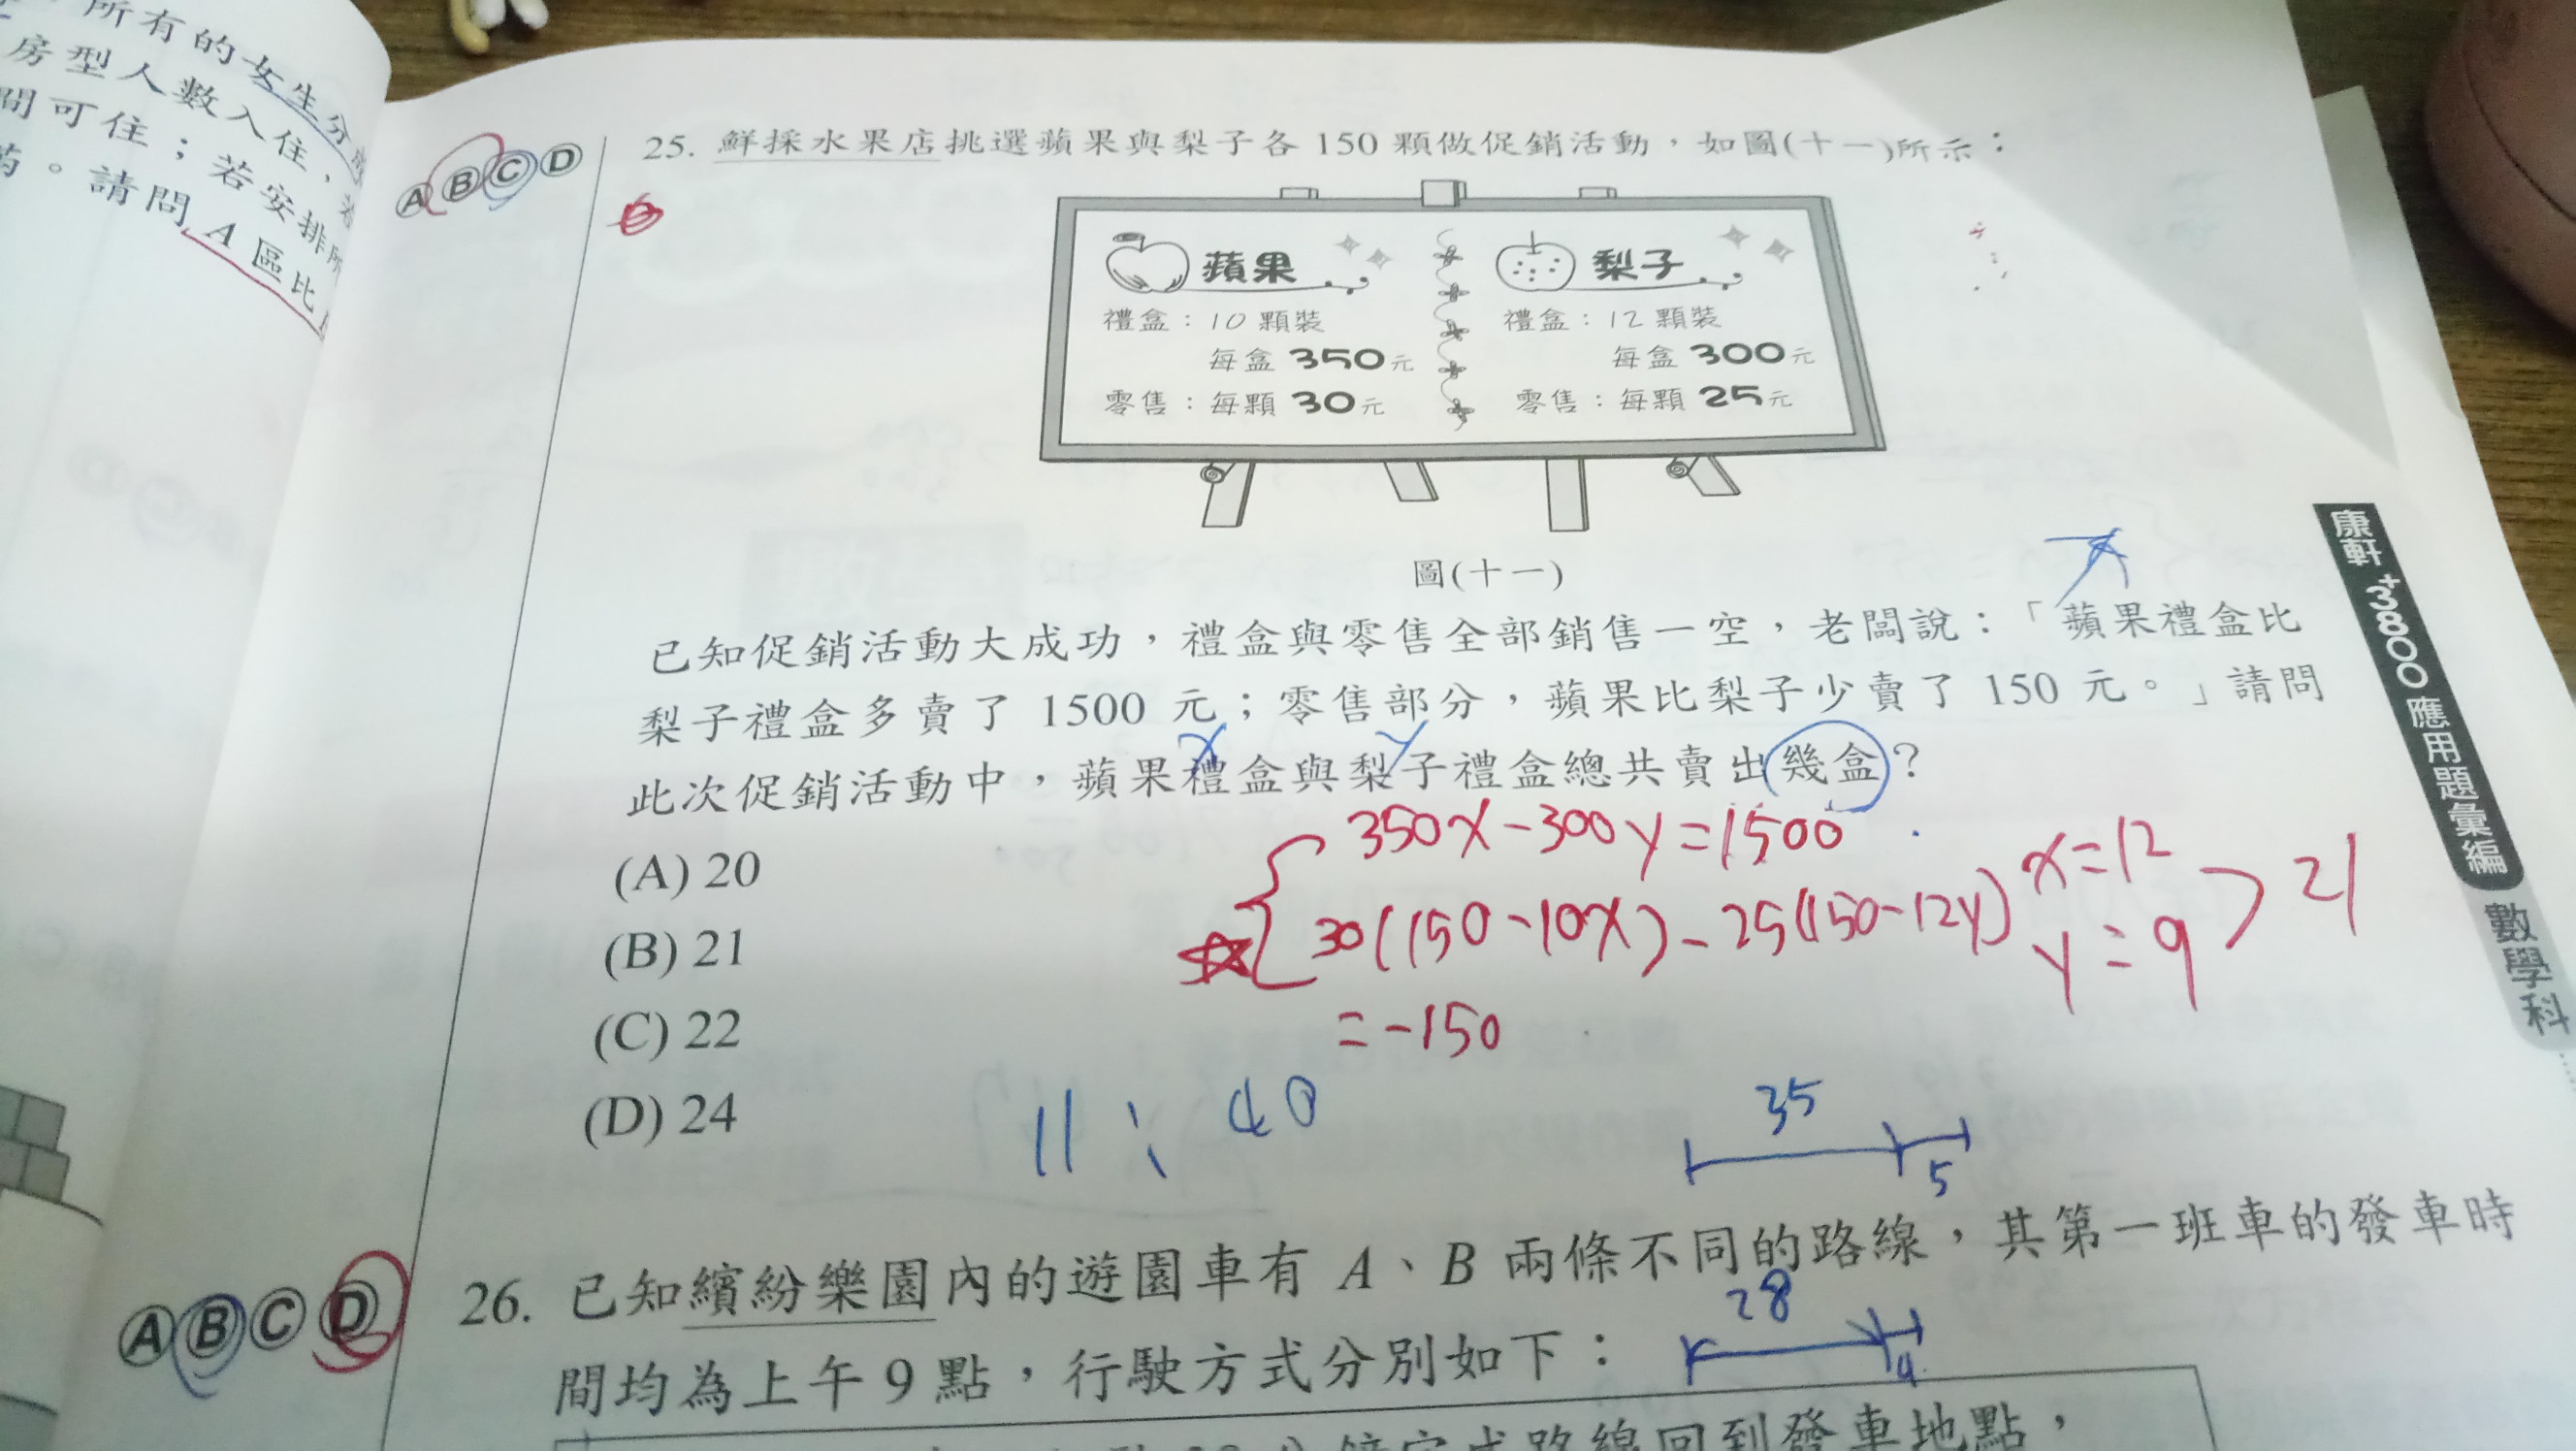 所有的女生分
房型人數入住,若
間可住;若安排所
。請問A區比
A B C D
25. 鮮採水果店挑選蘋果與梨子各 150 顆做促銷活動,如圖(十一)所示:
蘋果
禮盒:10 顆裝
每盒 350 元
零售:每顆 30 元
梨子
禮盒:12 顆裝
每盒 300 元
零售:每顆 25 元
圖(十一)
已知促銷活動大成功,禮盒與零售全部銷售一空,老闆說:「蘋果禮盒比
梨子禮盒多賣了 1500 元;零售部分,蘋果比梨子少賣了 150 元。」請問
x y
此次促銷活動中,蘋果禮盒與梨子禮盒總共賣出幾盒?
(A) 20
(B) 21
(C) 22
(D) 24
350x-300y=1500
30(150-10x)-25(150-12y)
=-150
x=12
y=9
21
11:40
35
5
A B C D
26. 已知繽紛樂園內的遊園車有 A、B 兩條不同的路線,其第一班車的發車時
間均為上午 9 點,行駛方式分別如下:
28
4
分鐘完成路線回到發車地點,
康軒 +3800 應用題彙編 數學科